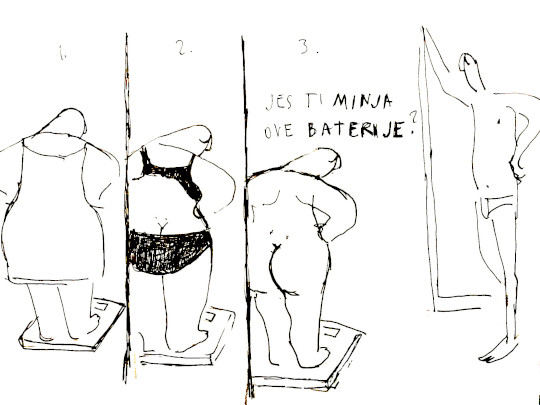 1.
2.
3.
JES TI MINJA
OVE BATERIJE?